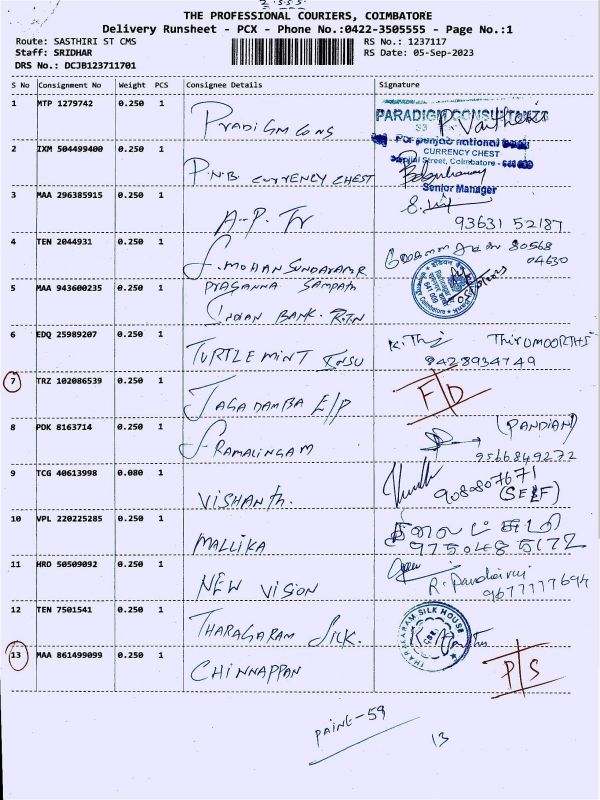 THE PROFESSIONAL COURIERS, COIMBATORE
Delivery Runsheet - PCX - Phone No.:0422-3505555 - Page No.:1
Route: SASTHIRI ST CMS
RS No.: 1237117
Staff: SRIDHAR
RS Date: 05-Sep-2023
DRS No.: DCJB123711701
S No Consignment No Weight PCS Consignee Details Signature
1 MTP 1279742 0.250 1 PRADIGM CONS
PARADIGM CONSULTANTS
2 IXM 504499400 0.250 1 P.N.B. CURRENCY CHEST
For punjab national bank
CURRENCY CHEST
Street, Coimbatore -
Senior Manager
3 MAA 296385915 0.250 1 A-P. Tr
93631 52187
4 TEN 2044931 0.250 1 S. MOHAN SUNDARAMR
80568
04630
5 MAA 943600235 0.250 1 PRASANNA SAMPATH
INDIAN BANK. R.T.N
6 EDQ 25989207 0.250 1 TURTLEMINT INSU
K. Thi THIRUMOORTHS
9428934749
7 TRZ 102086539 0.250 1 JAGADAMBA E/P
F/D
8 PDK 8163714 0.250 1 S RAMALINGAM
(PANDIAN)
9566849272
9 TCG 40613998 0.080 1 VISHANTH.
9080807671
(SELF)
10 VPL 220225285 0.250 1 MALLIKA
9750485172
11 HRD 50509092 0.250 1 NEW VISION
R. Pandiaraj
9677777694
12 TEN 7501541 0.250 1 THARAGARAM SILK.
THARAKARAM SILK HOUSE
CBE
13 MAA 861499099 0.250 1 CHINNAPPAN
P/S
PAINE-59
13